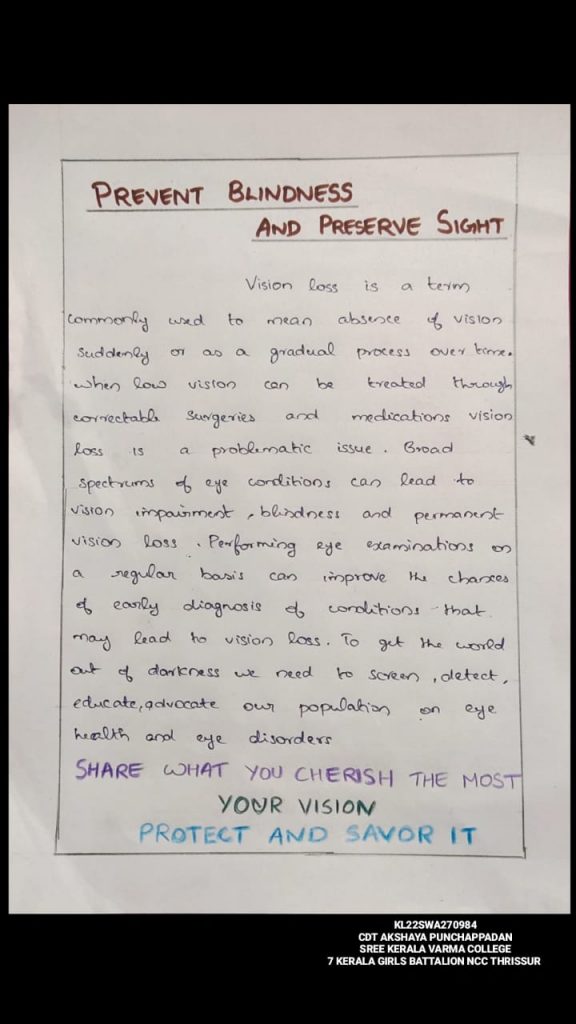 PREVENT BLINDNESS
AND PRESERVE SIGHT
Vision loss is a term
commonly used to mean absence of vision
suddenly or as a gradual process over time.
When low vision can be treated through
correctable surgeries and medications vision
loss is a problematic issue. Broad
spectrums of eye conditions can lead to
vision impairment, blindness and permanent
vision loss. Performing eye examinations on
a regular basis can improve the chances
of early diagnosis of conditions that
may lead to vision loss. To get the world
out of darkness we need to screen, detect,
educate, advocate our population on eye
health and eye disorders
SHARE WHAT YOU CHERISH THE MOST
YOUR VISION
PROTECT AND SAVOR IT
KL22SWA270984
CDT AKSHAYA PUNCHAPPADAN
SREE KERALA VARMA COLLEGE
7 KERALA GIRLS BATTALION NCC THRISSUR